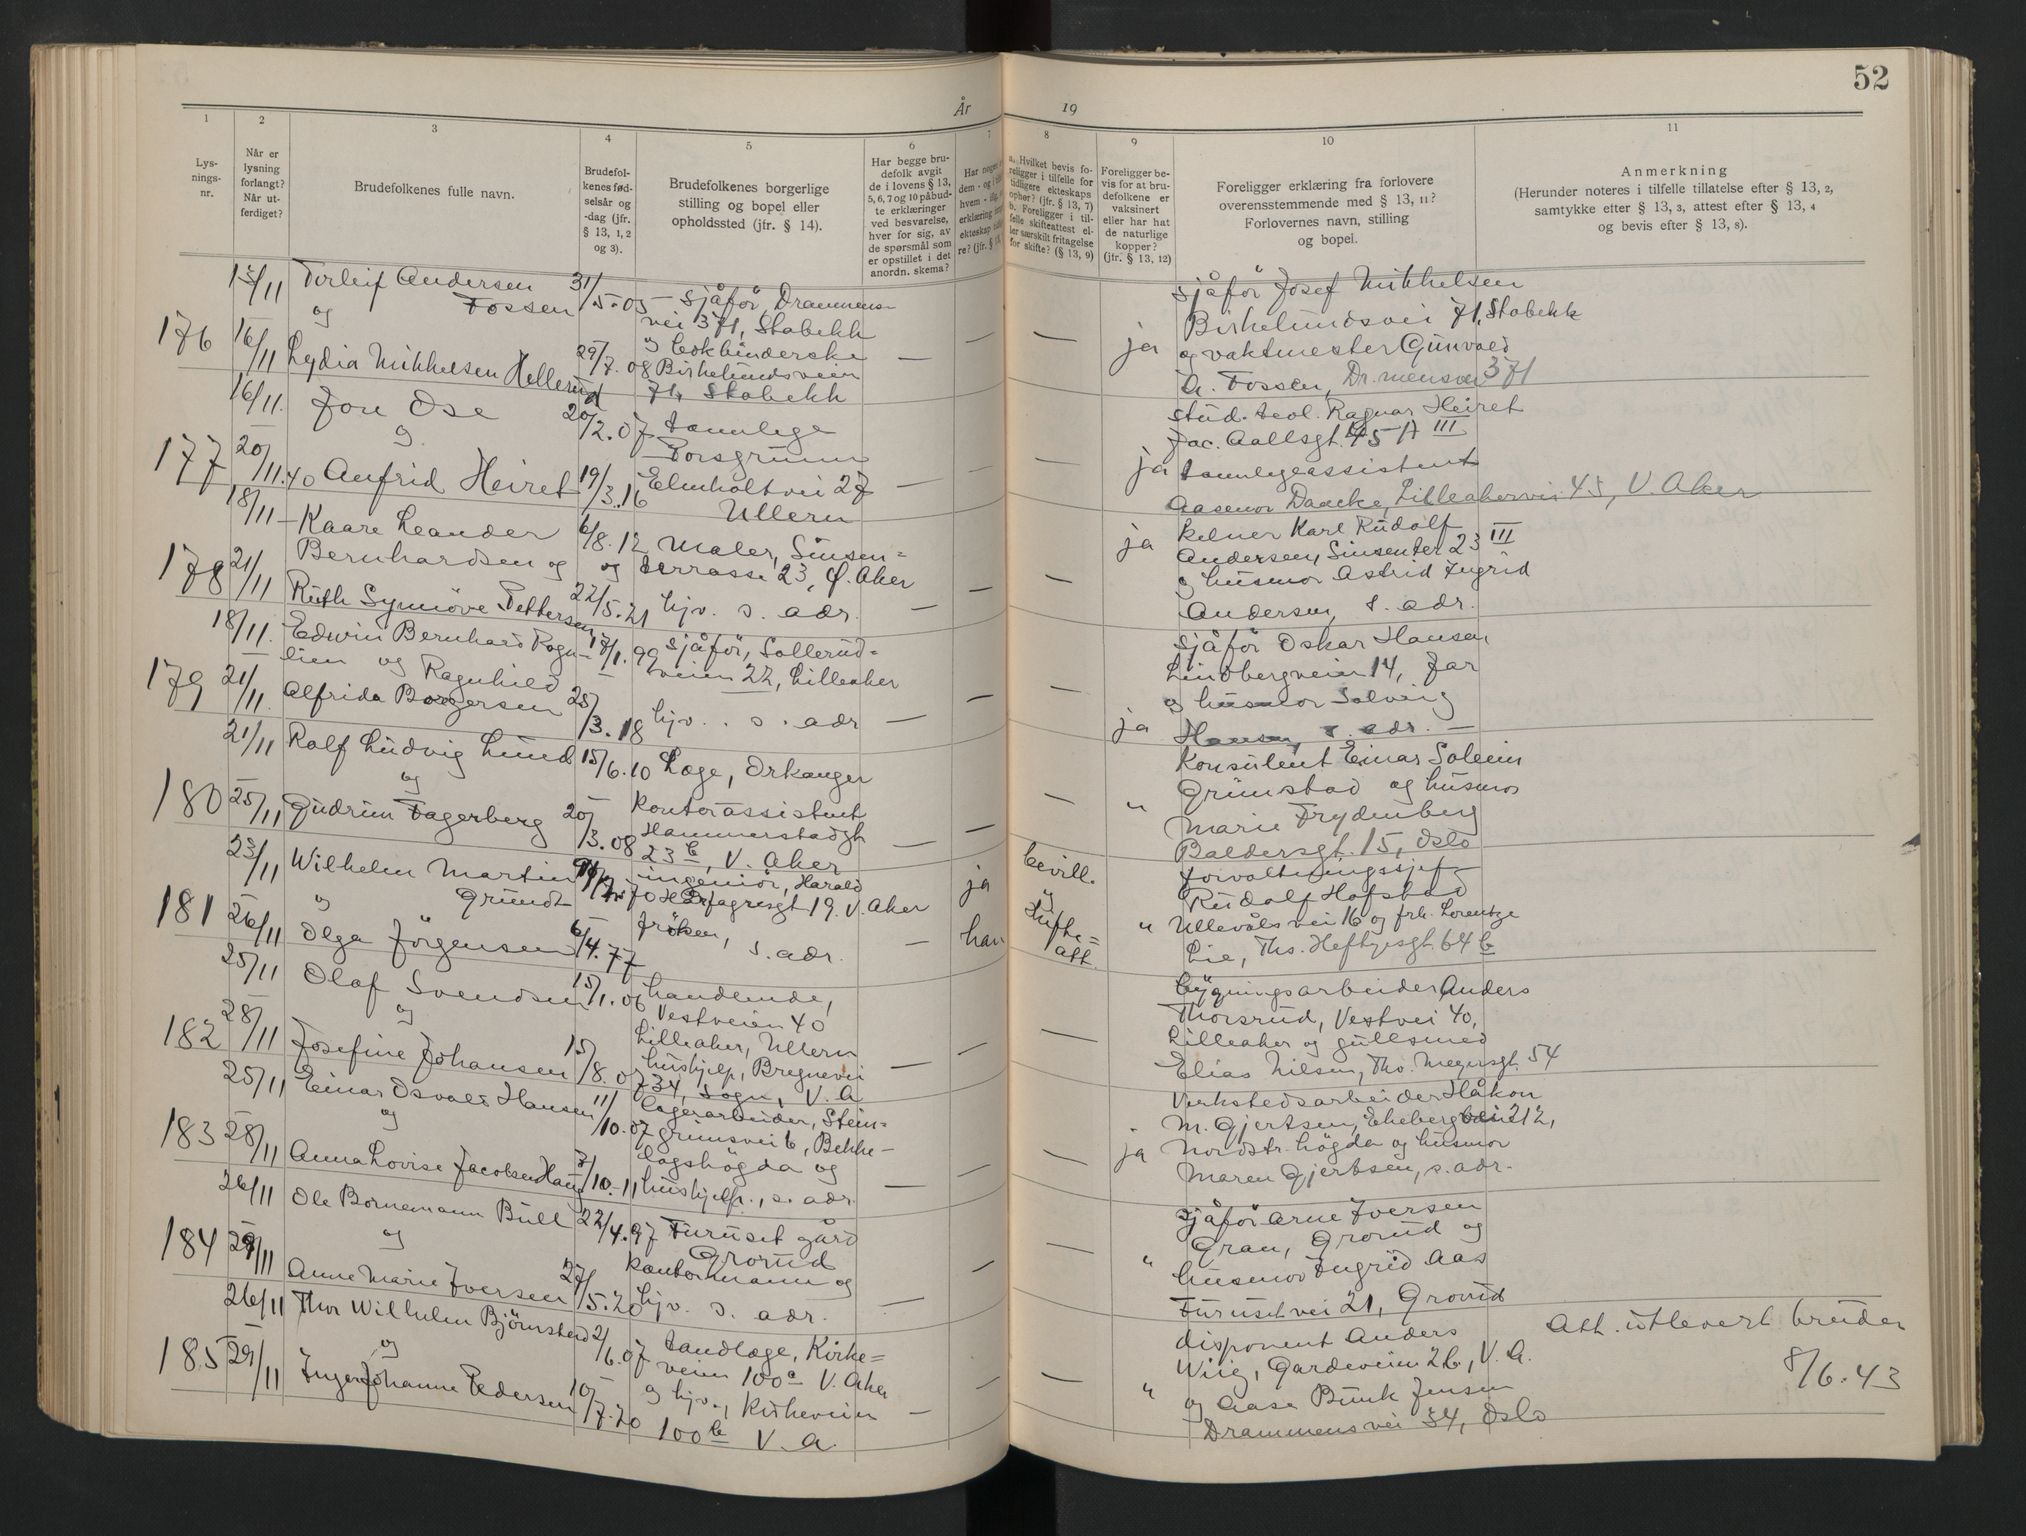 52
År 19
1 2 3 4 5 6 7 8 9 10 11
Lys-
nings-
nr.
Når er
lysning
forlangt?
Når ut-
ferdiget?
Brudefolkenes fulle navn.
Brudefol-
kenes fød-
selsår og
-dag (jfr.
§ 13, 1, 2
og 3).
Brudefolkenes borgerlige
stilling og bopel eller
opholdssted (jfr. § 14).
Har begge bru-
defolk avgit
de i lovens § 13,
5, 6, 7 og 10 påbud-
te erklæringer
ved besvarelse,
hver for sig, av
de spørsmål som
er opstillet i det
anordn. skema?
a. Hvilket bevis fo-
religger i tilfelle for
tidligere ekteskaps
ophør? (jfr. § 13, 7)
b. Foreligger i til-
felle skifteattest el-
ler særskilt fritagelse
for skifte? (§ 13, 9)
Foreligger be-
vis for at bru-
defolkene er
vaksinert
eller har hat
de naturlige
kopper?
(jfr. § 13, 12)
Foreligger erklæring fra forlovere
overensstemmende med § 13, 11?
Forlovernes navn, stilling
og bopel.
Anmerkning
(Herunder noteres i tilfelle tillatelse efter § 13, 2,
samtykke efter § 13, 3, attest efter § 13, 4
og bevis efter § 13, 8).
176
15/11
16/11
Torleif Andersen
Fossen
og
Lydia Mikkelsen Hellerud
31/5.05
29/7.08
Sjåfør, Drammens-
vei 371, Stabekk
og bokbinderske
Birkelundsveien
71, Stabekk
— — — ja
Sjåfør Josef Mikkelsen
Birkelundsvei 71, Stabekk
og vaktmester Gunvald
A. Fossen, Dr.mensvei 371
177
16/11.
20/11.40
Jon Ose
og
Anfrid Heiret
20/2.07
19/3.16
tannlege
Porsgrunn
Elmholtvei 27
Ullern
— — — ja
stud. teol. Ragnar Heiret
Jac. Aallsgt. 45 A III
tannlegeassistent
Aasemor Daacke, Lilleakervei 45, V. Aker
178
18/11
21/11
Kaare Leander
Bernhardsen og
Ruth Synnöve Pettersen
6/8.12
22/5.21
Maler, Sinsen=
og terrasse 23, Ö. Aker
hjv. s. adr.
— — — ja
Kelner Karl Rudolf
Andersen, Sinsenter 23 III
og husmor Astrid Ingrid
Andersen, s. adr.
179
18/11.
21/11.
Edwin Bernhard Rogn-
lien og Ragnhild
Alfrida Borgersen
18/1.99
25/3.18
sjåför, Sollerud=
veien 22, Lilleaker
hjv. . s. adr
— — — ja
sjåför Oskar Hansen
Lindbergveien 14, Jar
og husmor Solveig
Hansen, s. adr. —
180
21/11
25/11
Rolf Ludvig Lund
og
Gudrun Fagerberg
15/6.10
20/3.08
Lege, Orkanger
Kontorassistent
Hammerstadgt
23 b, V. Aker
— — — "
Konsulent Einar Solem
Grimstad og husmor
Marie Frydenberg
Baldersgt. 15, Oslo
181
23/11
26/11
Wilhelm Martin
Grundt
og
Olga Jörgensen
6/4.77
ingeniør, Harald
Hårfagresgt 19. V. Aker
fröken, s. adr.
— ja
han
bevill.
og
skifte=
att.
"
forvaltningssjef
Rudolf Hofstad
Ullevålsvei 16 og frk. Lorentze
Lie, Ths. Heftyesgt. 64 b
182
25/11
28/11
Olaf Svendsen
og
Josefine Johansen
15/1.06
15/8.07
handlende,
Vestveien 40
Lilleaker, Ullern
hushjelp, Bregnevei
34, Sogn, V. A
— — —
bygningsarbeider Anders
Thorsrud, Vestvei 40,
Lilleaker og gullsmed
Elias Nilsen, Thv. Meyersgt. 54
183
25/11
28/11
Einar Osvald Hansen
og
Anna Lovise Jacobsen Haug
11/10.07
7/10.11
lagerarbeider, Stein-
grimsvei 6, Bekke-
lagshögda og
hushjelp., s. adr.
— — — ja
Verkstedsarbeider Håkon
M. Gjertsen, Ekebergveien 212,
Nordstr. högda og husmor
Maren Gjertsen, s. adr.
184
26/11
29/11
Ole Bornemann Bull
og
Anne Marie Iversen
22/4.97
27/5.20
Furuset gård
Grorud
Kontormann og
hjv. s. adr.
— — — "
sjåför Arne Iversen
Gran, Grorud og
husmor Ingrid Aas
Furusetvei 21, Grorud
185
26/11
29/11
Thor Wilhelm Björnstad
og
Inger Johanne Pedersen
2/6.07
10/7.20
tandlæge, Kirke=
veien 100 c V. Aker
og hjv., Kirkeveien
100 b V. A.
— — — "
disponent Anders
Wiig, Gardeveien 2b, V. A.
og Aase Bunk Jensen
Drammensvei 34, Oslo
Att. utlevert bruden
8/6.43